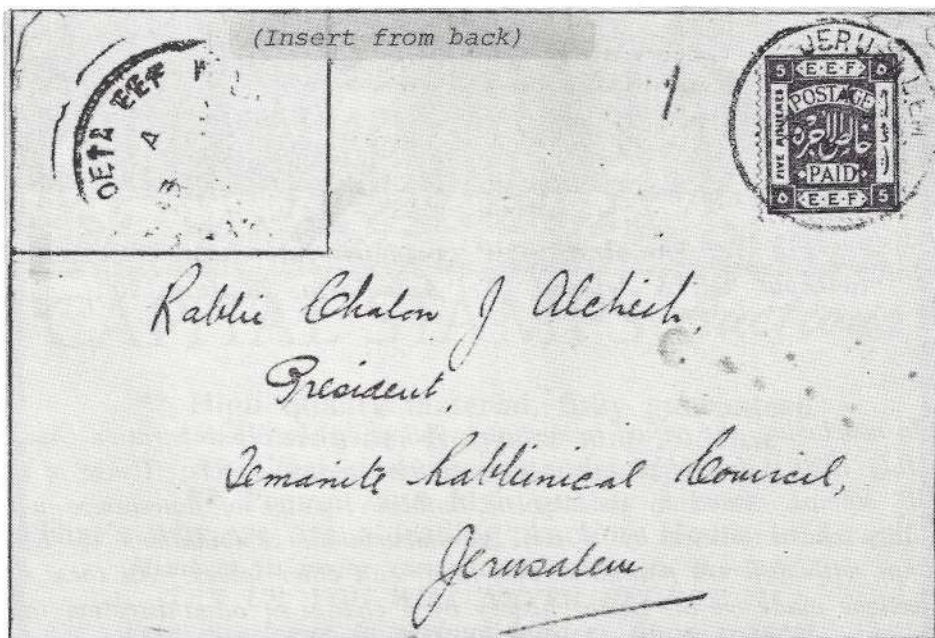 (Insert from back)
OETA EEF
A
JERUSALEM
5 E·E·F ٥
POSTAGE
FIVE MILLIEMES
خالص الاجرة
PAID
٥ E·E·F 5
Rabbi Shalon J Alcheih,
President,
Temanite Rabbinical Council,
Jerusalem